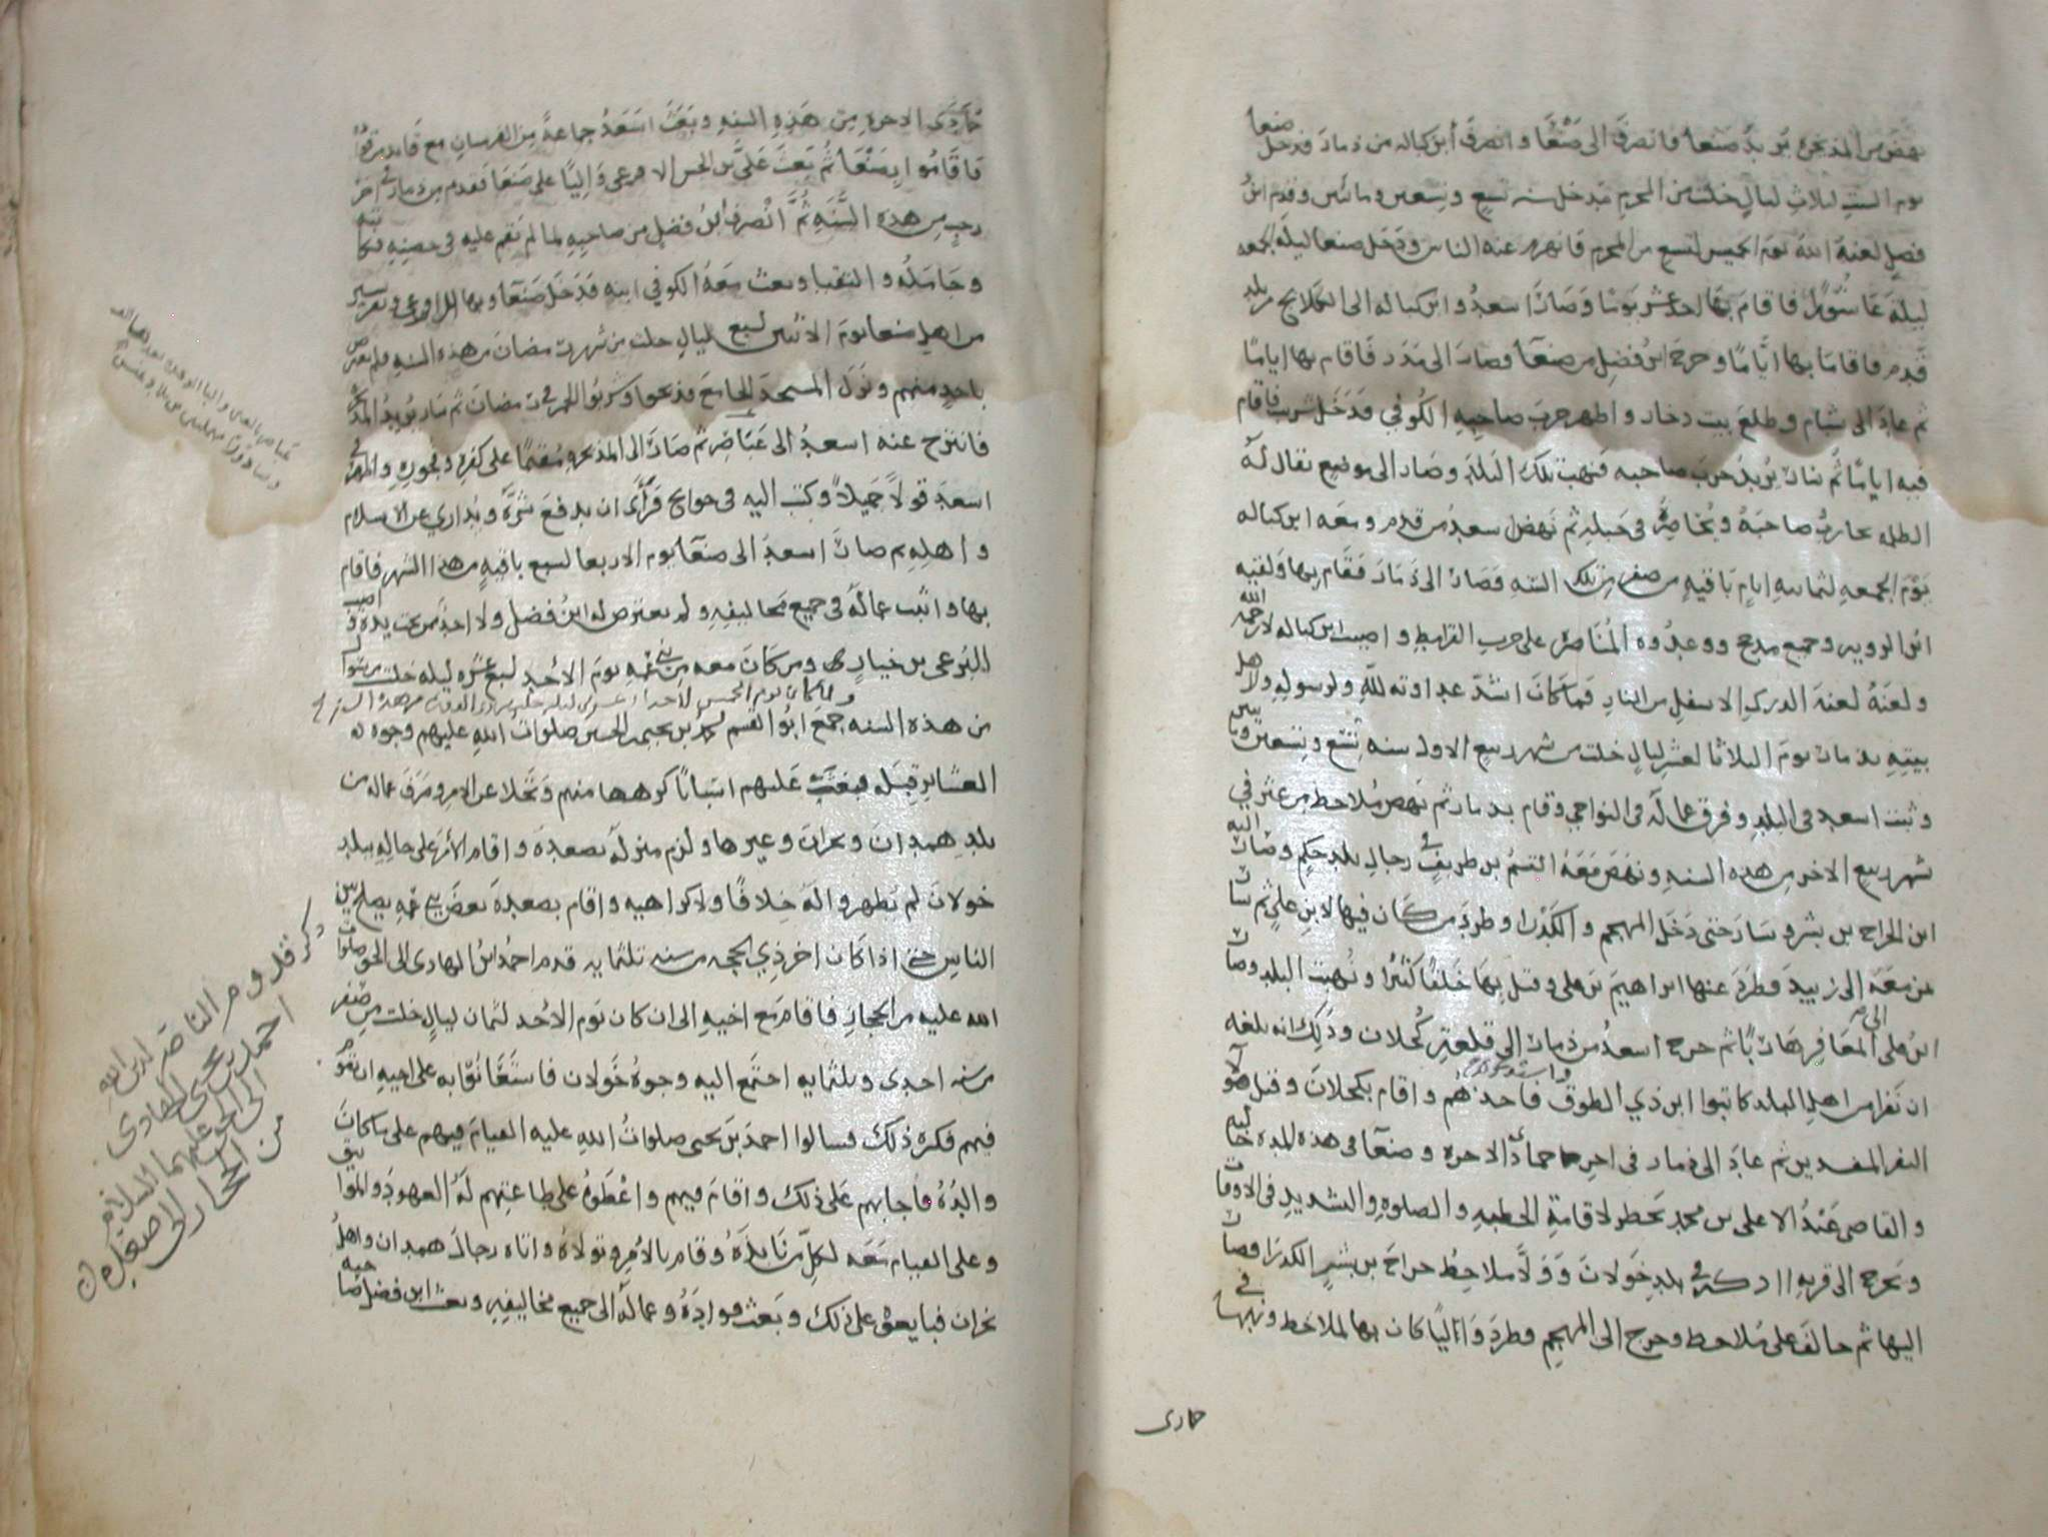 نهض من المذيخره يريد صنعا فانصرف الى صنعا وانصرف ابن كباله من ذمار فدخل صنعا
يوم السبت لثلاث ليال خلت من المحرم مدخل سنه تسع وتسعين ومائتين وقدم ابن
فضل لعنه الله يوم الخميس لتسع من المحرم فانهزم عنه الناس ودخل صنعا ليله الجمعه
ليلة عاشورا فاقام بها احد عشر يوما وصار اسعد وابن كباله الى من بلد
قدم فاقاما بها اياما وخرج ابن فضل من صنعا وصار الى مدر فاقام بها اياما
ثم عاد الى شبام وطلع بيت ذخار واظهر حرب صاحبه الكوفي فدخل شرب فاقام
فيه اياما ثم سار يريد حرب صاحبه فنهب تلك البلد وصار الى موضع يقال له
الظلمه يحارب صاحبه ويحاصره في جبله ثم نهض سعد من قدم ومعه ابن كباله
يوم الجمعه لثمانيه ايام باقيه من صفر من تلك السنه فصار الى ذمار فقام بها ولقيه
ابن الرويه وجميع مذحج ووعدوه المناصره على حرب القرامطه واصيب ابن كباله لا رحمه الله
ولعنه لعنة الدرك الاسفل من النار فما كان اشد عداوته لله ولرسوله ولاهل
بيته بذمار يوم الثلاثا لعشر ليال خلت من شهر ربيع الاول سنه تسع وتسعين ومائتين
وثبت اسعد في البلد وفرق عماله في النواحي وقام بذمار ثم نهض ملاحظ من عثر في
شهر ربيع الاخر من هذه السنه ونهض معه القسم بن طريف في رجال بلد حكم وصار اليه
ابن الجراح بن بشر وسار حتى دخل المهجم والكدرا وطرد من كان فيها لابن علي ثم سار
بمن معه الى زبيد فطرد عنها ابراهيم بن علي وقتل بها خلقا كثيرا ونهبت البلد وصار
ابن علي الى المعافر هاربا ثم خرج اسعد من ذمار الى قلعة كحلان وذلك انه بلغه
ان نفرا من اهل البلد كاتبوا ابن ذي الطوق فاخذهم واقام بكحلان وقتل هولا
النفر المفسدين ثم عاد الى ذمار في اخر جمادى الاخره وصنعا في هذه المده خاليه
والقاضي عبد الاعلى بن محمد يحضر لاقامة الخطبه والصلوه والتشديد في الاوقات
ويخرج الى قريه في بلد خولان وولا ملاحظ جراح بن بشر الكدرا فصار
اليها ثم حالف على ملاحظ وخرج الى المهجم وطرد واليا كان بها لملاحظ ونهبها في
جمادى
جمادى الاخره من هذه السنه وبعث اسعد جماعة من الفرسان مع قايد
فاقاموا بصنعا ثم بعث علي بن الحسن الاقرعي واليا على صنعا فقدم من ذمار في اخر
رجب من هذه السنه ثم انصرف ابن فضل من صاحبه لما لم يقم عليه في حصنه فكاتبه
وجاسله والنقبا وبعث معه الكوفي ابنه فدخل صنعا وبها
من اهل صنعا يوم الاثنين لسبع ليال خلت من شهر رمضان من هذه السنه فلم يعرض
باحد منهم ونزل المسجد الجامع فذبحوا وشربوا الخمر في رمضان ثم سار يريد المذيخره
فانتزح عنه اسعد الى عباصر ثم صار الى المذيخره مقيما على كفره وفجوره
اسعد قولا جميلا وكتب اليه في حوايج فرأى ان يدفع شره ويداري عن الاسلام
واهله ثم صار اسعد الى صنعا يوم الاربعا لسبع باقيه من هذا الشهر فاقام
بها واثبت عماله في جميع مخاليفه ولم يعترض له ابن فضل ولا احد من تحت يده واصيب
البرعي بن خيار ومن كان معه من بني عمه يوم الاحد لسبع عشره ليله خلت من شوال
ولما كان يوم الخميس لاحدا عشر ليله خلت من ذي القعده من هذه السنه
من هذه السنه جمع ابو القسم محمد بن يحيى بن الحسين صلوات الله عليهم وجوه
العشاير قبله فعتب عليهم اسبابا كرهها منهم وتخلا عن الامر وصرف عماله من
بلد همدان ونجران وغيرها ولزم منزله بصعده واقام الامر على حاله ببلد
خولان لم يظهروا له خلافا ولا كراهيه واقام بصعده بعض بني عمه يصلح بين
الناس حتى اذا كان اخر ذي الحجه من سنه ثلثمايه قدم احمد ابن الهادى الى الحق صلوات
الله عليه من الحجاز فاقام مع اخيه الى ان كان يوم الاحد لثمان ليال خلت من صفر
من سنه احدى وثلثمايه اجتمع اليه وجوه خولان فاستعانوا به على اخيه ان يقوم
فيهم فكره ذلك فسالوا احمد بن يحيى صلوات الله عليه القيام فيهم على ما كان
والده فاجابهم على ذلك واقام فيهم واعطوه على طاعتهم له العهود والمواثيق
وعلى القيام معه لكل من نابذه وقام بالامر وتولاه واتاه رجال همدان واهل
نجران فبايعوه على ذلك وبعث قواده وعماله الى جميع مخاليفه وبعث ابن فضل صاحبه
ذكر قدوم الناصر لدين الله
احمد بن يحيى الهادى
الى الحق عليهما السلام
من الحجاز الى صعده